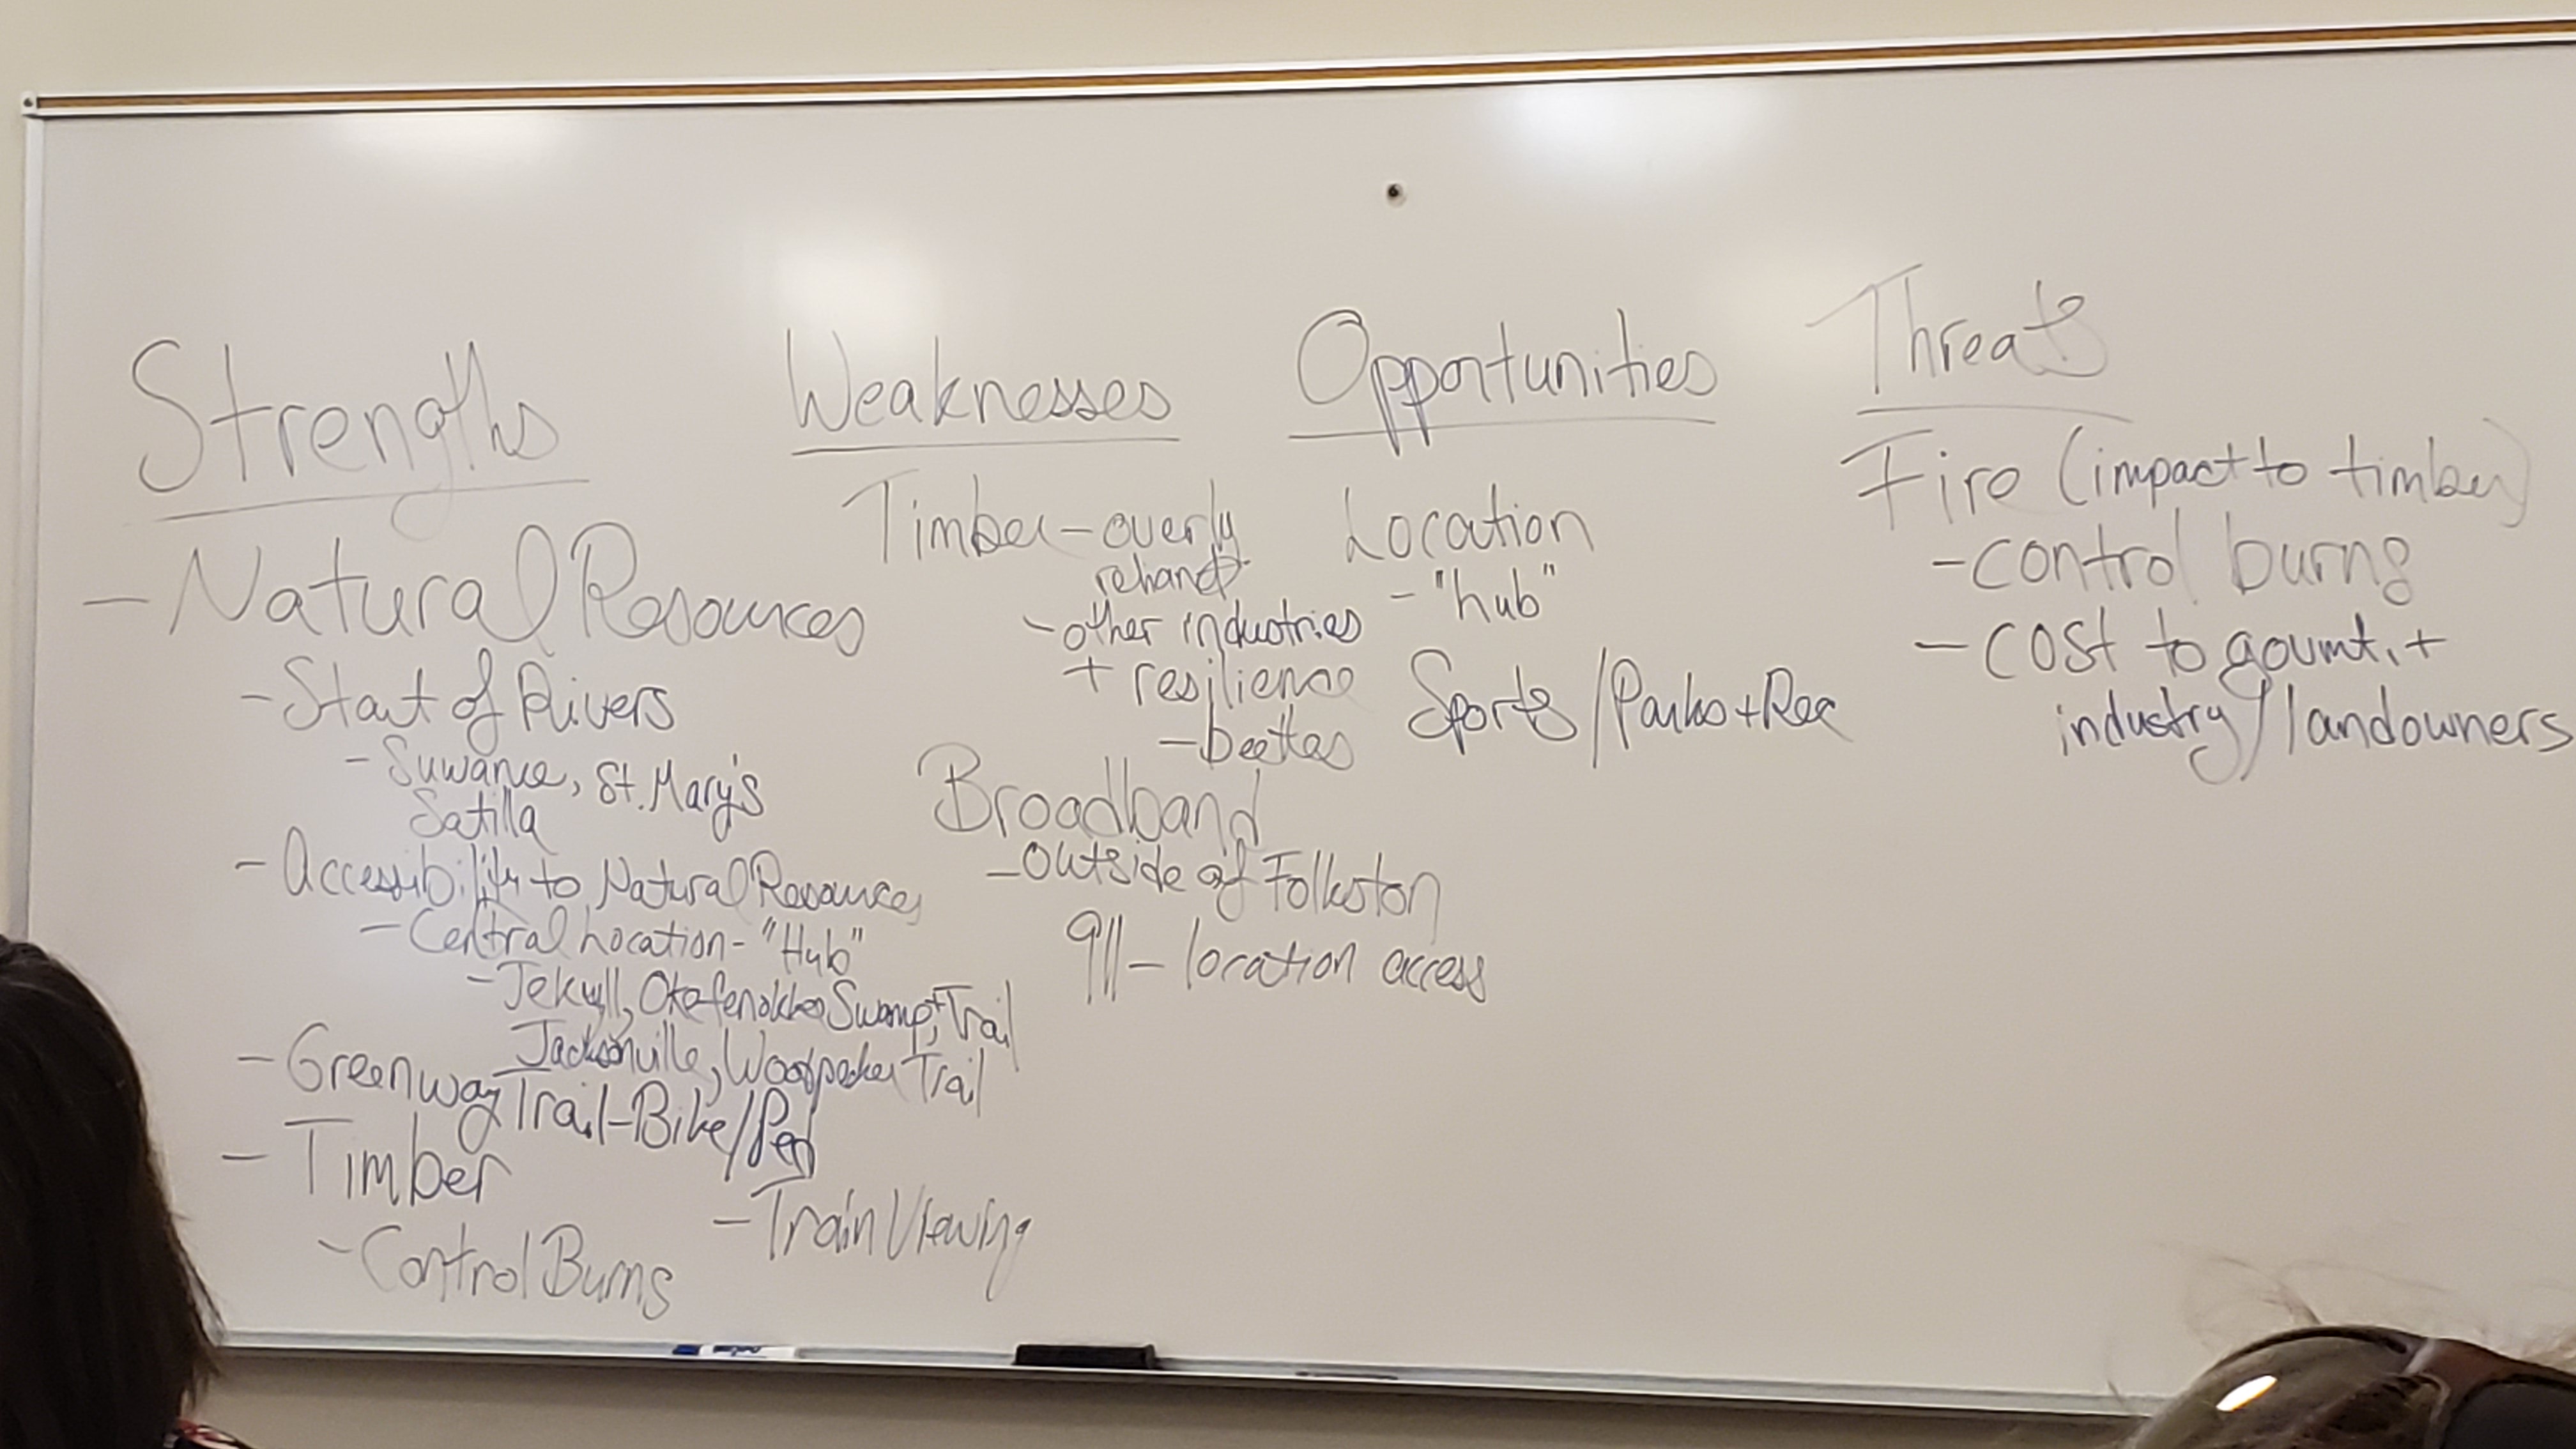 Strengths
- Natural Resources
- Start of Rivers
- Suwanee, St. Mary's
Satilla
- Accessibility to Natural Resources
- Central Location - "Hub"
- Jekyll, Okefenokee Swamp + Trail
Jacksonville, Woodpecker Trail
- Greenway Trail - Bike/Ped
- Timber
- Control Burns
- Train Viewing
Weaknesses
Timber - overly
reliant
- other industries
+ resilience
- beetles
Broadband
- Outside of Folkston
911 - location access
Opportunities
Location
- "hub"
Sports/Parks + Rec
Threats
Fire (impact to timber)
- control burns
- cost to govmt. +
industry/landowners